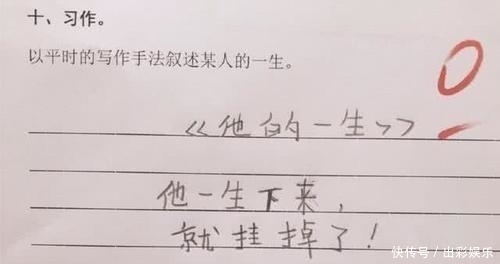 十、习作。
以平时的写作手法叙述某人的一生。
0
《他的一生》
他一生下来，
就挂掉了！
快传号／出彩娱乐